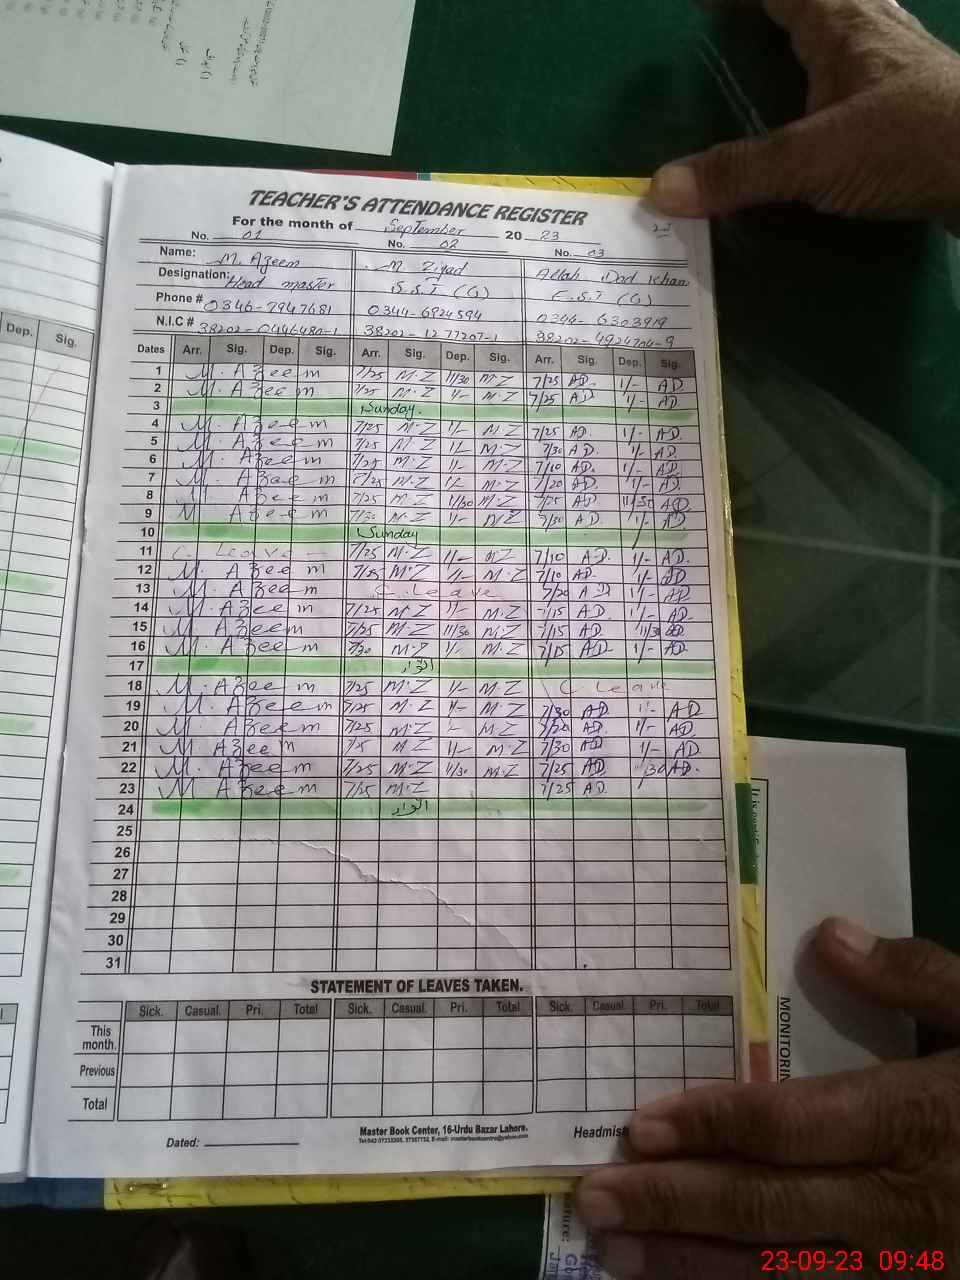 TEACHER'S ATTENDANCE REGISTER
For the month of September 20 23
No. 01 No. 02 No. 03
Name: M. Azeem M Ziyad Allah Dad khan
Designation: Head master S.S.T (G) E.S.T (G)
Phone # 0346-7947681 0344-6824594 0344-6303919
N.I.C # 38202-0446480-1 38202-1277207-1 38202-4924704-9
Dates Arr. Sig. Dep. Sig. Arr. Sig. Dep. Sig. Arr. Sig. Dep. Sig.
1 M. Azeem 7/25 M.Z 11/30 M.Z 7/25 AD. 1/- AD
2 M. Azeem 7/25 M.Z 1/- M.Z 7/25 AD 1/- AD
3 Sunday.
4 M. Azeem 7/25 M.Z 1/- M.Z 7/25 AD. 1/- AD.
5 M. Azeem 7/25 M.Z 1/- M.Z 7/30 AD. 1/- AD.
6 M. Azeem 7/25 M.Z 1/- M.Z 7/10 AD. 1/- AD.
7 M. Azeem 7/25 M.Z 1/- M.Z 7/20 AD. 1/- AD.
8 M. Azeem 7/25 M.Z 11/30 M.Z 7/25 AD 11/30 AD
9 M. Azeem 7/30 M.Z 1/- MZ 7/30 AD. 1/- AD
10 Sunday
11 C. Leave 7/25 M.Z 1/- MZ 7/10 AD. 1/- AD.
12 M. Azeem 7/25 M.Z 1/- M.Z 7/10 AD. 1/- AD
13 M. Azeem C. Leave 7/20 AD 1/- AD
14 M. Azeem 7/25 MZ 1/- M.Z 7/15 AD. 1/- AD.
15 M. Azeem 7/25 M.Z 11/30 M.Z 7/15 AD. 11/30 AD
16 M. Azeem 7/30 M.Z 1/- M.Z 7/15 AD. 1/- AD.
17 اتوار
18 M. Azeem 7/25 M.Z 1/- M.Z C. Leave
19 M. Azeem 7/25 M.Z 1/- M.Z 7/30 AD. 1/- AD
20 M. Azeem 7/25 M.Z MZ 7/20 AD. 1/- AD.
21 M. Azeem 7/25 MZ 1/- M.Z 7/30 AD 1/- AD.
22 M. Azeem 7/25 M.Z 11/30 M.Z 7/25 AD. 11/30 AD.
23 M. Azeem 7/25 M.Z 7/25 AD.
24 اتوار
25
26
27
28
29
30
31
STATEMENT OF LEAVES TAKEN.
Sick. Casual. Pri. Total Sick. Casual. Pri. Total Sick. Casual. Pri. Total
This month.
Previous
Total
Dated:
Master Book Center, 16-Urdu Bazar Lahore.
Headmist
Dep. Sig.
MONITORIN
23-09-23 09:48